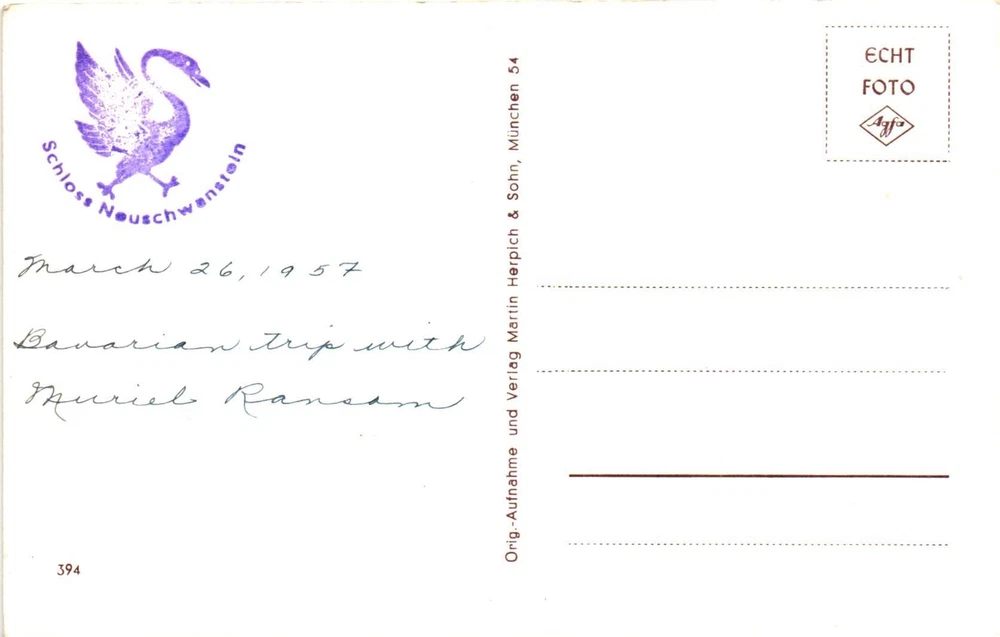 Schloss Neuschwanstein
March 26, 1957
Bavarian trip with
Muriel Ransom
394
Orig.-Aufnahme und Verlag Martin Herpich & Sohn, München 54
ECHT
FOTO
Agfa